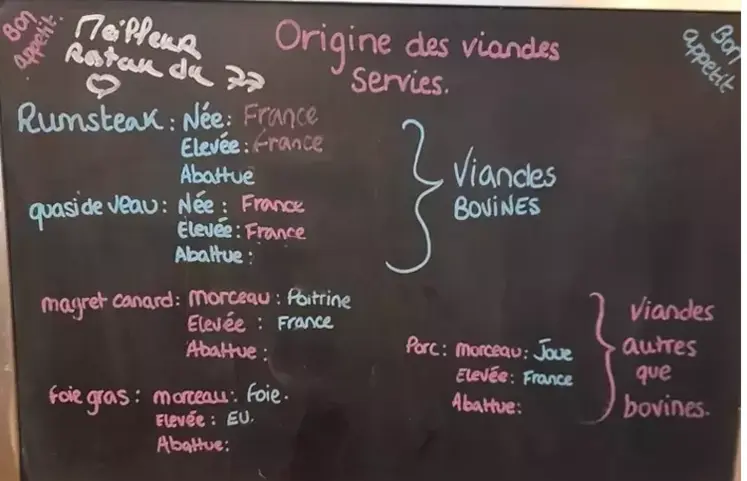 Bon
appétit.
Meilleur
Restau du 77
Origine des viandes
Servies.
Bon
appétit
Rumsteak: Née: France
Elevée: France
Abattue
quasi de veau: Née: France
Elevée: France
Abattue:
Viandes
BOVINES
magret canard: Morceau: Poitrine
Elevée: France
Abattue:
foie gras: morceau: foie.
Elevée: EU.
Abattue:
Porc: morceau: Joue
Elevée: France
Abattue:
Viandes
autres
que
bovines.